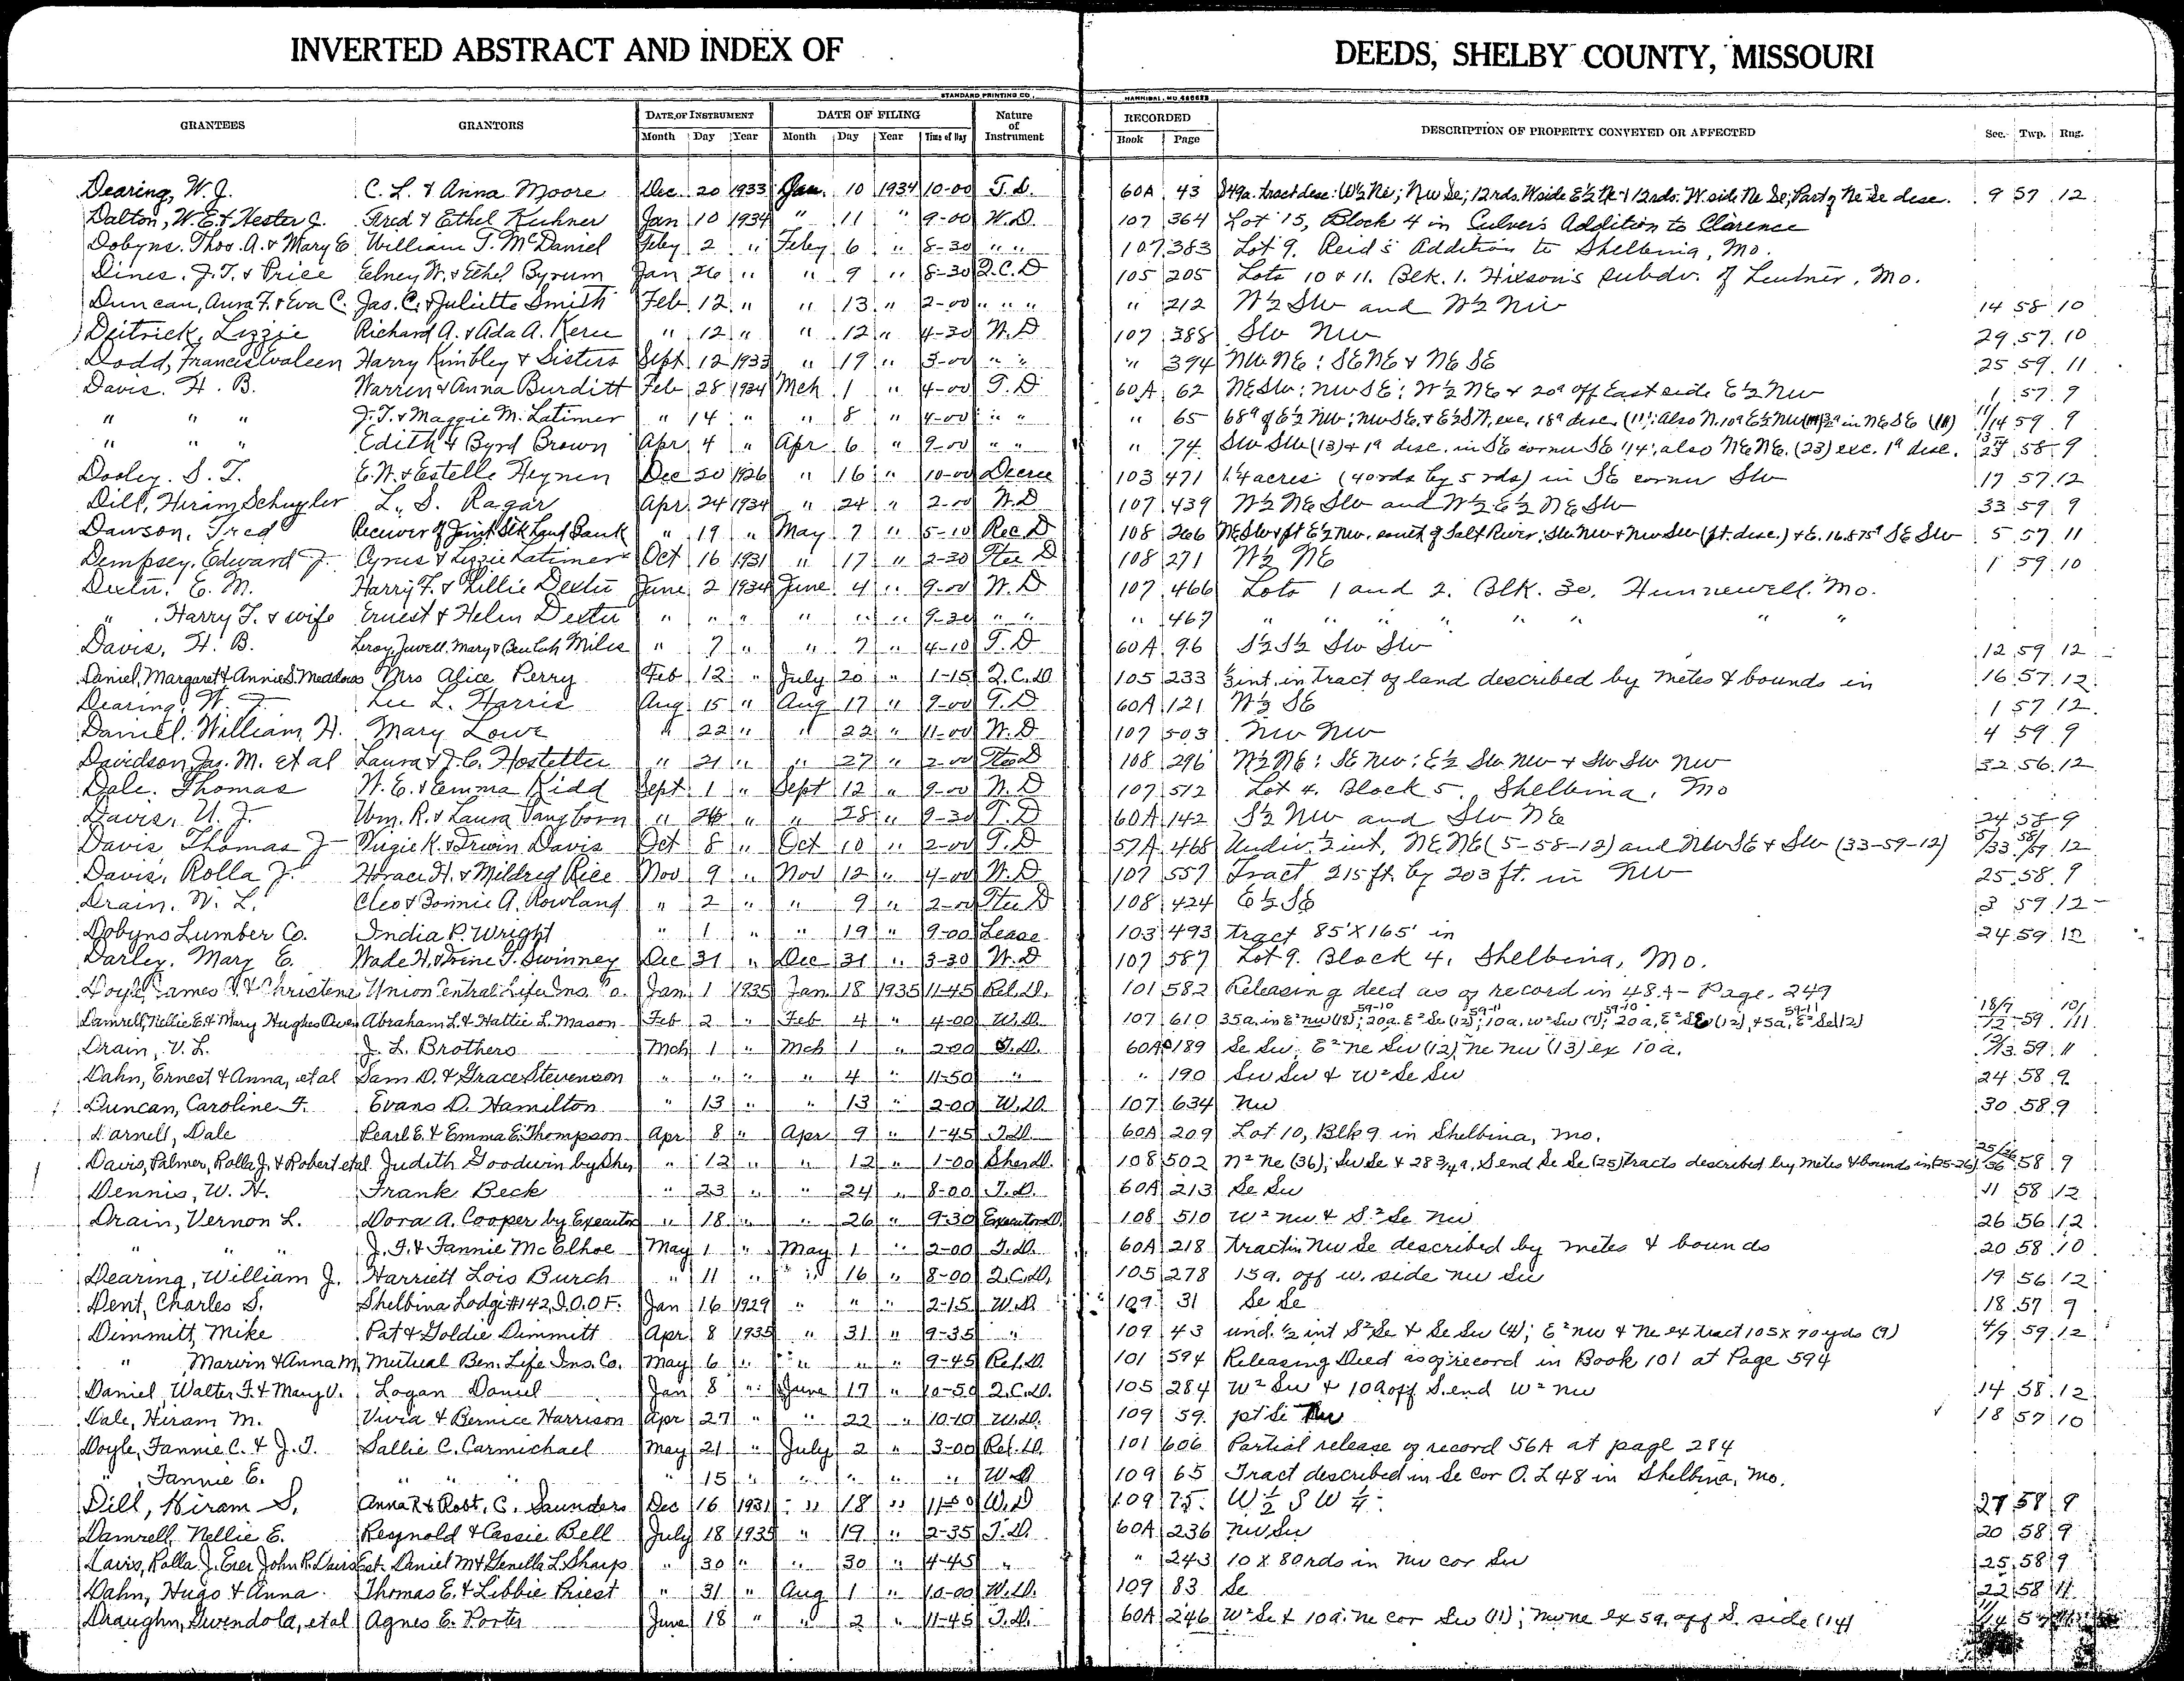 INVERTED ABSTRACT AND INDEX OF DEEDS, SHELBY COUNTY, MISSOURI
STANDARD PRINTING CO., HANNIBAL, MO
GRANTEES GRANTORS DATE OF INSTRUMENT DATE OF FILING Nature of Instrument RECORDED DESCRIPTION OF PROPERTY CONVEYED OR AFFECTED Sec. Twp. Rng.
Month Day Year Month Day Year Time of Day Book Page
Dearing, W. J. C. L. & Anna Moore Dec. 20 1933 Jan. 10 1934 10-00 T.D. 60A 43 49a. tract desc: W½ Ne; Nw Se; 12 rds. W side E½ Ne & 12 rds. W. side Ne Se; Part of Ne Se desc. 9 57 12
Dalton, W. E. & Hester J. Fred & Ethel Kuhner Jan 10 1934 " 11 " 9-00 W.D. 107 364 Lot 15, Block 4 in Culver's Addition to Clarence
Dobyns. Thos. A. & Mary E. William T. McDaniel Feby 2 " Feby 6 " 8-30 " " 107 383 Lot 9. Reid's Addition to Shelbina, Mo.
Dines. J. T. & Price Elney W. & Ethel Byrum Jan 26 " " 9 " 8-30 Q.C.D 105 205 Lots 10 & 11. Blk. 1. Hixson's Subdv. of Lentner, Mo.
Duncan, Aura F. & Eva C. Jas. C. & Juliette Smith Feb 12 " " 13 " 2-00 " " " " 212 W½ SW and W½ NW 14 58 10
Deitrick, Lizzie Richard A. & Ada A. Kern " 12 " " 12 " 4-30 W.D 107 388 SW NW 29 57 10
Dodd, Francis Evaleen Harry Kimbley & Sisters Sept 12 1933 " 19 " 3-00 " " " 394 NW NE; SE NE & NE SE 25 59 11
Davis. H. B. Warren & Anna Burditt Feb 28 1934 Mch 1 " 4-00 T.D 60A 62 NE SW; NW SE; W½ NE & 20a off East side E½ NW 1 57 9
" " " J. T. & Maggie M. Latimer " 14 " " 8 " 4-00 " " " 65 68a of E½ NW; NW SE, & E½ SW, exc. 18a desc. (11); Also N. 10a E½ NW in NE SE 11/14 59 9
" " " Edith & Byrd Brown Apr 4 " Apr 6 " 9-00 " " " 74 SW SW (13) & 1a desc. in SE corner SE 14; also NE NE. (23) exc. 1a desc. 58 9
Dooley. S. T. E. W. & Estelle Heynen Dec 20 1926 " 16 " 10-00 Decree 103 471 1¼ acres (40 rds by 5 rds) in SE corner SW 17 57 12
Dill, Hiram Schuyler L. S. Ragar Apr 24 1934 " 24 " 2-00 W.D 107 439 W½ NE SW and W½ E½ NE SW 33 59 9
Dawson, Fred Receiver of Joint Stk Land Bank " 19 " May 7 " 5-10 Rec. D 108 266 NE SW & pt E½ NW. south of Salt River; SW NW & NW SW (pt. desc.) & E. 16.875a SE SW 5 57 11
Dempsey, Edward J. Cyrus & Lizzie Latimer Oct 16 1931 " 17 " 2-30 Ttee D 108 271 W½ NE 1 59 10
Dexter, E. M. Harry F. & Lillie Dexter June 2 1934 June 4 " 9-00 W.D 107 466 Lots 1 and 2. Blk. 30, Hunnewell. Mo.
" Harry F. & wife Ernest & Helen Dexter " " " " " " 9-30 " " " 467 " " " " " " "
Davis, H. B. Leroy, Jewell, Mary & Beulah Miles " 7 " " 7 " 4-10 T.D 60A 96 S½ S½ SW SW 12 59 12
Daniel, Margaret & Annie S. Meadows Mrs Alice Perry Feb 12 " July 20 " 1-15 Q.C.D. 105 233 ⅓ int. in tract of land described by metes & bounds in 16 57 12
Dearing, W. J. Lee L. Harris Aug 15 " Aug 17 " 9-00 T.D 60A 121 W½ SE 1 57 12
Daniel, William H. Mary Lowe " 22 " " 22 " 11-00 W.D 107 503 NW NW 4 59 9
Davidson, Jas. M. et al Laura & J. C. Hostetter " 21 " " 27 " 2-00 Ttee D 108 296 W½ NE; SE NW; E½ SW NW & SW SW NW 32 56 12
Dale. Thomas W. E. & Emma Kidd Sept 1 " Sept 12 " 9-00 W.D 107 512 Lot 4. Block 5. Shelbina, Mo
Davis, U. J. Wm. R. & Laura Vangborn " 26 " " 28 " 9-30 T.D 60A 142 S½ NW and SW NE 24 58 9
Davis, Thomas J Virgie K. & Irwin Davis Oct 8 " Oct 10 " 2-00 T.D 57A 468 Undiv. ½ int, NE NE (5-58-12) and NW SE & SW (33-59-12) 5/33 58/59 12
Davis, Rolla J. Horace H. & Mildred Rice Nov 9 " Nov 12 " 4-00 W.D 107 557 Tract 215 ft. by 203 ft. in NW 25 58 9
Drain. W. L. Cleo & Bonnie A. Rowland " 2 " " 9 " 2-00 Ttee D 108 424 E½ SE 3 59 12
Dobyns Lumber Co. India P. Wright " 1 " " 19 " 9-00 Lease 103 493 tract 85' X 165' in 24 59 12
Darley. Mary E. Wade H. & Irine T. Swinney Dec 31 " Dec 31 " 3-30 W.D 107 587 Lot 9. Block 4, Shelbina, Mo.
Doyle, James V. & Christena Union Central Life Ins. Co. Jan 1 1935 Jan 18 1935 11-45 Rel. D. 101 582 Releasing deed as of record in 48A - Page. 249
Damrell, Nellie E. & Mary Hughes Owen Abraham L. & Hattie L. Mason Feb 2 " Feb 4 " 4-00 W.D. 107 610 35a. in E² NW (18); 20a. E² Se (12); 10a. W² Sw (7); 20a, E² SE (12), & 5a, E² Se (12) 18/7/12 59 10/11
Drain, V. L. J. L. Brothers Mch 1 " Mch 1 " 2-00 T.D. 60A 189 Se Sw; E² Ne Sw (12); Ne Nw (13) ex 10a. 12/13 59 11
Dahn, Ernest & Anna, et al Sam D. & Grace Stevenson " " " " 4 " 11-50 " " 190 Sw Sw & W² Se Sw 24 58 9
Duncan, Caroline F. Evans D. Hamilton " 13 " " 13 " 2-00 W.D. 107 634 Nw 30 58 9
Darnell, Dale Pearl E. & Emma E. Thompson Apr 8 " Apr 9 " 1-45 T.D. 60A 209 Lot 10, Blk 9 in Shelbina, Mo.
Davis, Palmer, Rolla J. & Robert et al Judith Goodwin by Sher " 12 " " 12 " 1-00 Sher D. 108 502 N² Ne (36); Sw Se & 28¾ a. S end Se Se (25) tracts described by metes & bounds in (25-26) 25/26/36 58 9
Dennis, W. H. Frank Beck " 23 " " 24 " 8-00 T.D. 60A 213 Se Sw 11 58 12
Drain, Vernon L. Dora A. Cooper by Executor " 18 " " 26 " 9-30 Executor D. 108 510 W² Nw & S² Se Nw 26 56 12
" " " J. F. & Fannie McElhoe May 1 " May 1 " 2-00 T.D. 60A 218 tract in Nw Se described by metes & bounds 20 58 10
Dearing, William J. Harriett Lois Burch " 11 " " 16 " 8-00 Q.C.D. 105 278 15a. off w. side Nw Sw 19 56 12
Dent, Charles S. Shelbina Lodge #142, I.O.O.F. Jan 16 1929 " " " 2-15 W.D. 109 31 Se Se 18 57 9
Dimmitt, Mike Pat & Goldie Dimmitt Apr 8 1935 " 31 " 9-35 " 109 43 und. ½ int S² Se & Se Sw (4); E² Nw & Ne ex tract 105 X 70 yds (9) 4/9 59 12
" Marvin & Anna M. Mutual Ben. Life Ins. Co. May 6 " " " " 9-45 Rel. D. 101 594 Releasing Deed as of record in Book 101 at Page 594
Daniel, Walter F. & Mary V. Logan Daniel Jan 8 " June 17 " 10-50 Q.C.D. 105 284 W² Sw & 10a off S. end W² Nw 14 58 12
Dale, Hiram M. Vivia & Bernice Harrison Apr 27 " " 22 " 10-10 W.D. 109 59 pt Se Nw 18 57 10
Doyle, Fannie C. & J. T. Sallie C. Carmichael May 21 " July 2 " 3-00 Rel. D. 101 606 Partial release of record 56A at page 284
" , Fannie C. " " " " 15 " " " " " W.D 109 65 Tract described in Se cor O. L 48 in Shelbina, Mo.
Dill, Hiram S. Anna R & Robt. C. Saunders Dec 16 1931 " 18 " 11-50 W.D 109 75 W ½ S W ¼ 27 58 9
Damrell, Nellie E. Reynold & Cassie Bell July 18 1935 " 19 " 2-35 T.D. 60A 236 Nw Sw 20 58 9
Davis, Rolla J. Exer John R. Davis Est. Daniel M & Genella L. Sharp " 30 " " 30 " 4-45 " " 243 10 X 80 rds in Nw cor Sw 25 58 9
Dahn, Hugo & Anna Thomas E. & Libbie Priest " 31 " Aug 1 " 10-00 W.D. 109 83 Se 22 58 11
Draughn, Gwendola, et al Agnes E. Porter June 18 " " 2 " 11-45 T.D. 60A 246 W² Se & 10a. Ne cor Sw (11); Nw Ne ex 5a. off S. side (14)